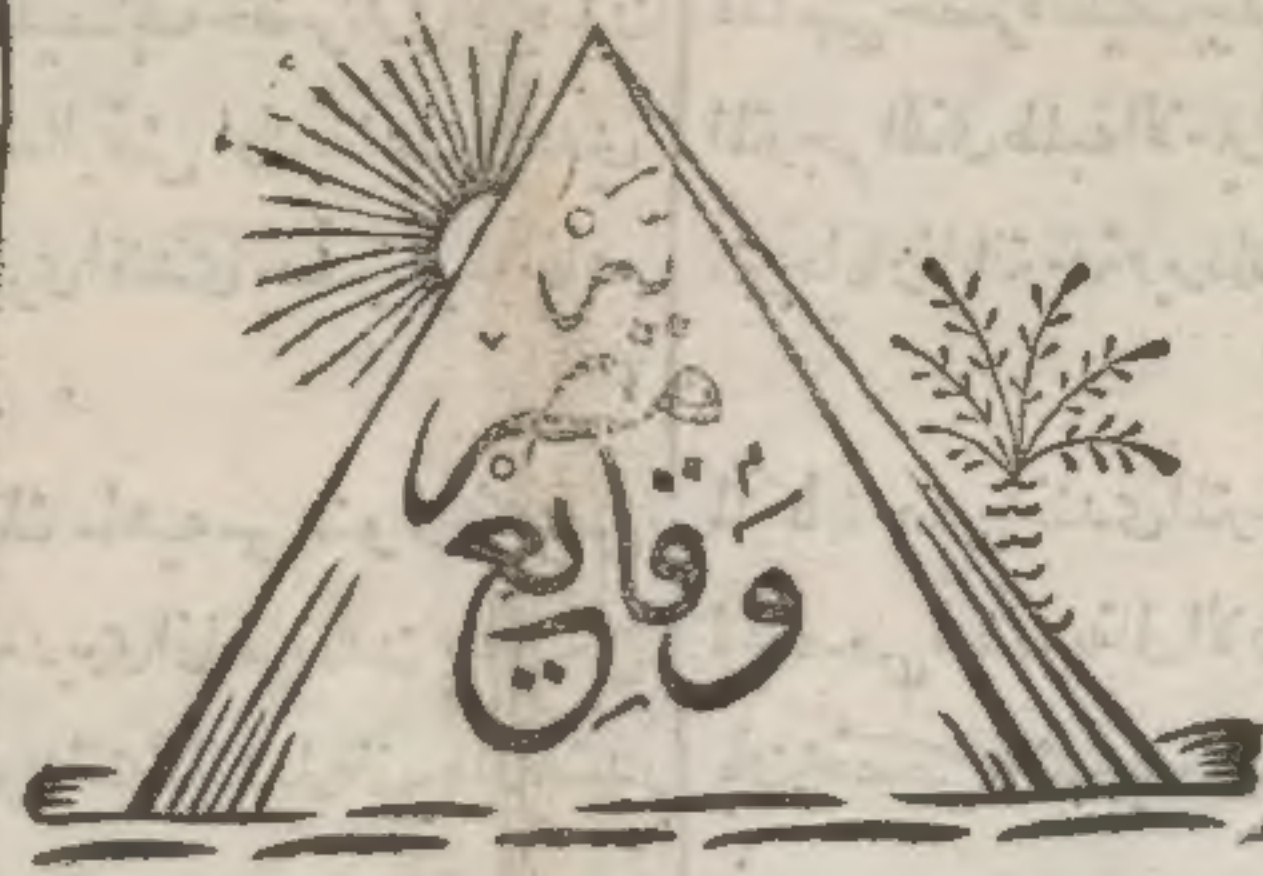 وَقايعِ
مصريه